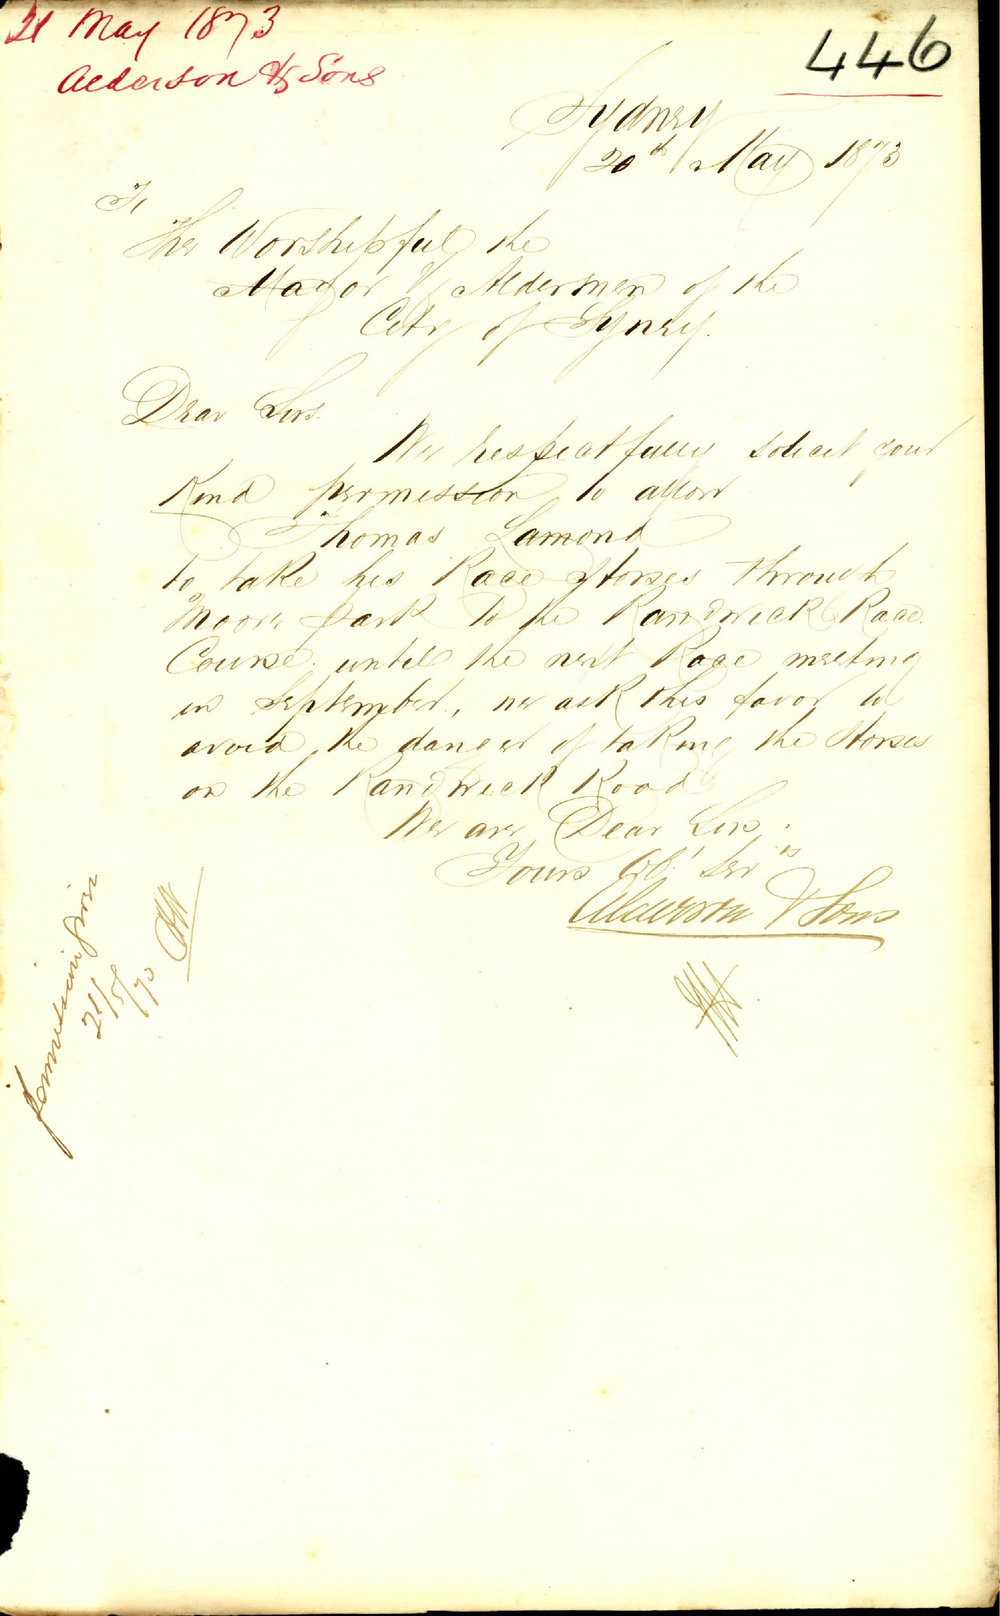 21 May 1873
Alderson & Sons
446
Sydney
20th May 1873
To
The Worshipful the
Mayor & Aldermen of the
City of Syney.
Dear Sirs.
We respectfully solicit your
Kind permission to allow
Thomas Lamond
to take his Race Horses through
Moore Park to the Randwick Race
Course. until the next Race meeting
in September, we ask this favor to
avoid the danger of taking the Horses
on the Randwick Road
We are, Dear Sirs,
Yours Obt Servts
Alderson & Sons
permission given
21/5/73